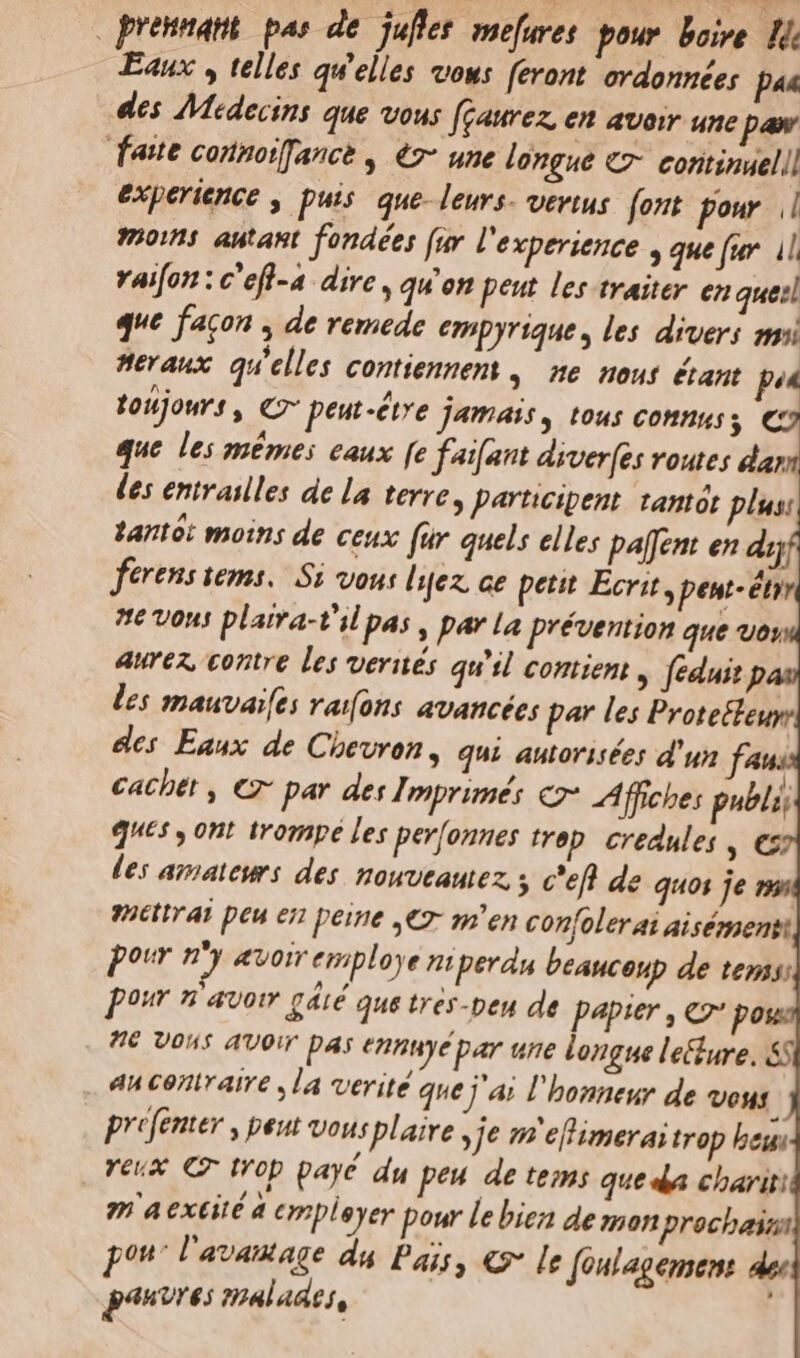 prennant pas de juſtes meſures pour boire
Eaux, telles qu'elles vous ſeront ordonnées
des Medecins que vous ſçaurez en avoir une
faite connoiſſance, & une longue &
experience, puis que leurs vertus ſont pour
moins autant fondées ſur l'experience, que ſur
raiſon: c'eſt-a dire, qu'on peut les traiter en
que façon, de remede empyrique, les divers
neraux qu'elles contiennent, ne nous étant
toûjours, & peut-être jamais, tous connus; &
que les mêmes eaux ſe faiſant diverſes routes
les entrailles de la terre, participent tantôt
tantôt moins de ceux ſur quels elles paſſent en
ferens tems. Si vous liſez ce petit Ecrit,
ne vous plaira-t'il pas, par la prévention que
aurez, contre les verités qu'il contient, ſeduit
les mauvaiſes raiſons avancées par les
des Eaux de Chevron, qui autorisées d'un
cachet, & par des Imprimés & Affiches
ques, ont trompé les perſonnes trop credules, &
les amateurs des nouveautez; c'eſt de quoi je
mettrai peu en peine, & m'en conſolerai
pour n'y avoir employé ni perdu beaucoup de
pour n'avoir gâté que tres-peu de papier, &
ne vous avoir pas ennuyé par une longue lecture.
au contraire, la verité que j'ai l'honneur de vous
preſenter, peut vous plaire, je m'eſtimerai trop
reux & trop payé du peu de tems que
m'a excité à employer pour le bien de mon
pour l'avantage du Païs, & le ſoulagement
pauvres malades,